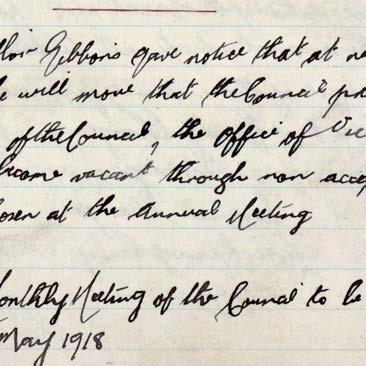 Gibbons gave notice that at
will move that the Council
of the Council, the office of
become vacant through non
at the Annual Meeting
Monthly Meeting of the Council to be
May 1918